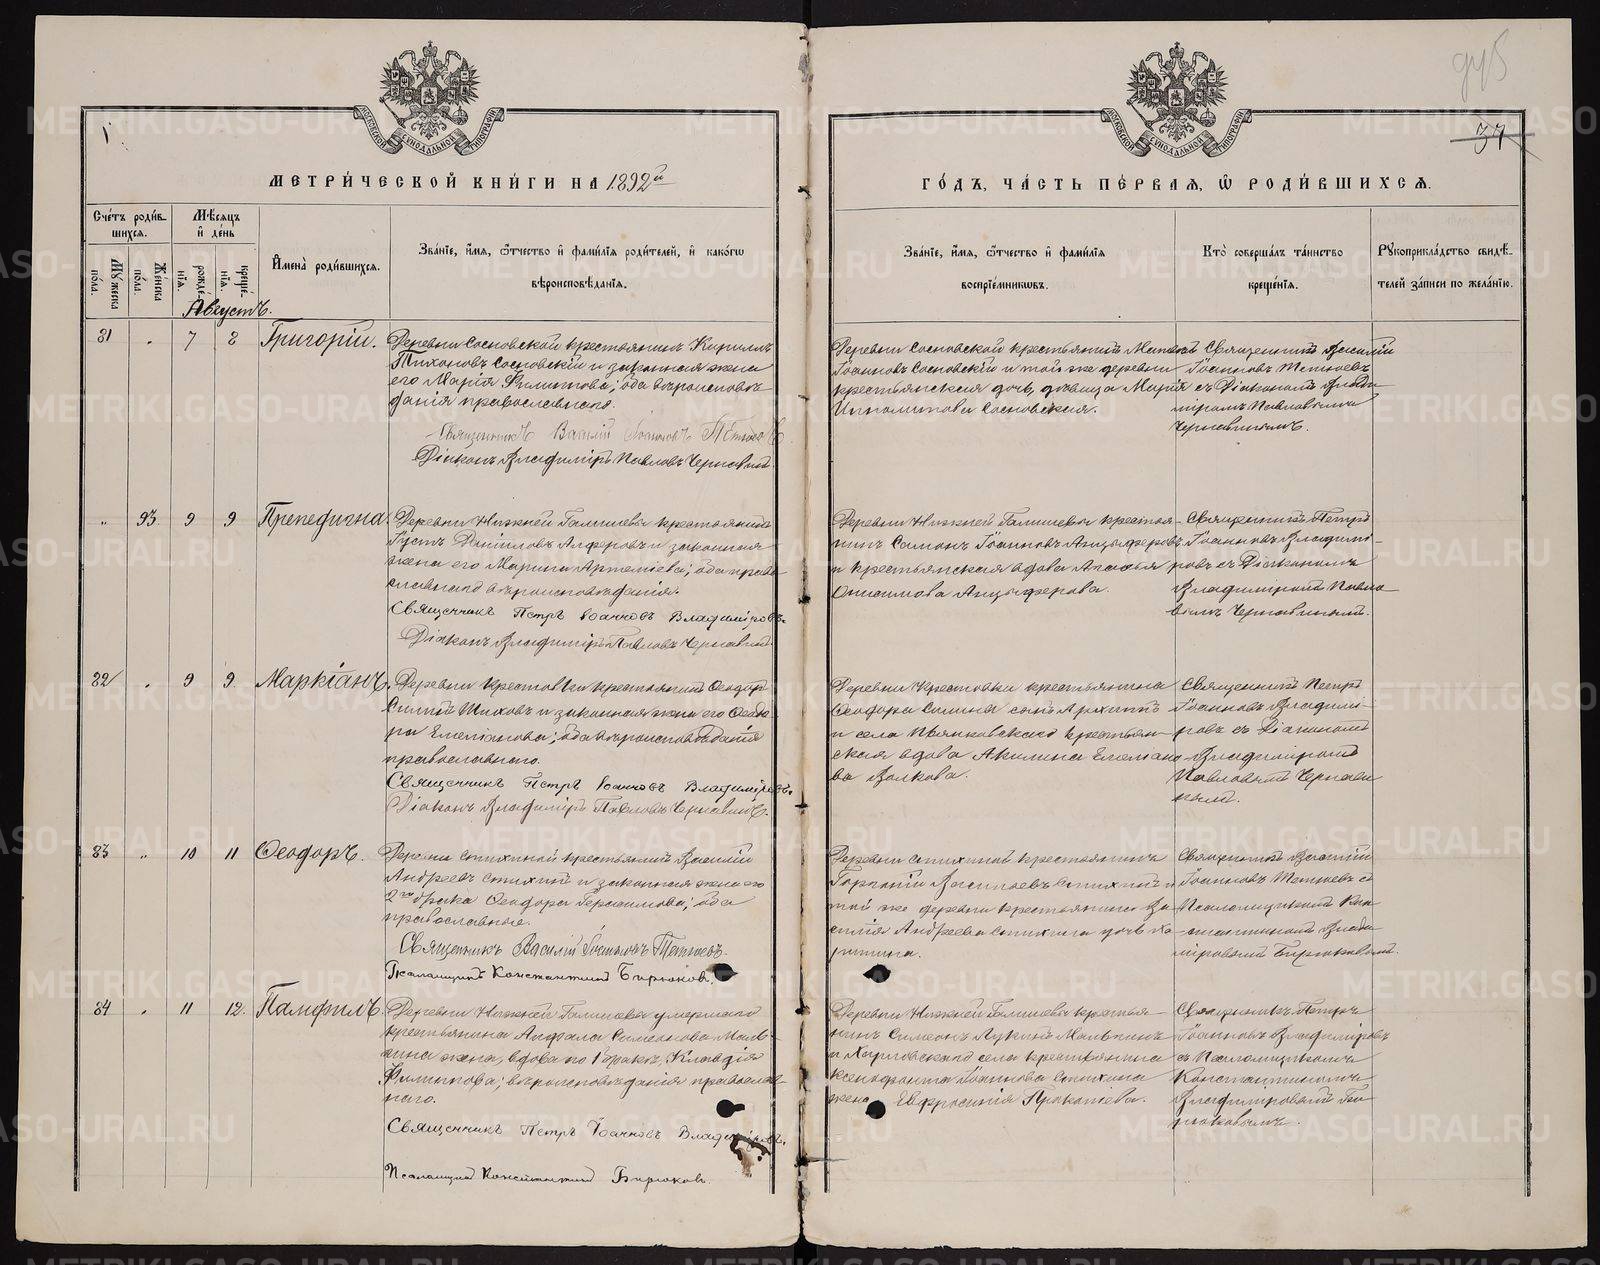 дуб
37
МЕТРИ́ЧЕСКОЙ КНИ́ГИ НА 1892й
ГО́ДЪ, ЧА́СТЬ ПЕ́РВАЯ, Ѽ РОДИ́ВШИХСѦ.
Сче́тъ роди́в-
шихсѧ.
Мꙋ́жеска по́ла.
Же́нска по́ла.
Мѣ́сѧцъ и де́нь
рожде́-нїѧ.
креще́-нїѧ.
И҆мена̀ роди́вшихсѧ.
Зва́нїе, и҆́мѧ, ѻ҆́тчество и҆ фами́лїѧ роди́телей, и҆ како́гѡ
вѣроисповѣ́данїѧ.
Зва́нїе, и҆́мѧ, ѻ҆́тчество и҆ фами́лїѧ
воспрїе́мникѡвъ.
Кто̀ соверша́лъ та́инство
креще́нїѧ.
Рꙋкоприкла́дство свидѣ́-
телей за́писи по жела́нїю.
Августъ.
81 " 7 8 Григорій.
Деревни Сосновской крестьянинъ Кириллъ
Тихоновъ Сосновскій и законная жена
его Марія Филиппова; оба вѣроисповѣ-
данія православнаго.
Священникъ Василій Іоанновъ
Діаконъ Владиміръ Павловъ Чернавинъ.
Деревни Сосновской крестьянинъ
Іоанновъ Сосновскій и той же деревни
крестьянская дочь, дѣвица Марія
Ипполитова Сосновская.
Священникъ Василій
Іоанновъ
съ Діакономъ Влади-
міромъ Павловымъ
Чернавинымъ.
" 93 9 9 Препедигна.
Деревни Нижней Галишевы крестьянинъ
Іустъ Даніиловъ Алферовъ и законная
жена его Марина Артеміева; оба право-
славнаго вѣроисповѣданія.
Священникъ Петръ Іоанновъ Владиміровъ.
Діаконъ Владиміръ Павловъ Чернавинъ.
Деревни Нижней Галишевы крестья-
нинъ Самонъ Іоанновъ Анцыферовъ
и крестьянская вдова Агафья
Онисимова Анцыферова.
Священникъ Петръ
Іоанновъ Владимі-
ровъ съ Діакономъ
Владиміромъ Павло-
вымъ Чернавинымъ.
82 " 9 9 Маркіанъ.
Деревни Крестовки крестьянинъ Ѳеодоръ
и законная жена его Ѳеодо-
ра Емеліанова; оба вѣроисповѣданія
православнаго.
Священникъ Петръ Іоанновъ Владиміровъ.
Діаконъ Владиміръ Павловъ Чернавинъ.
Деревни Крестовки крестьянина
Ѳеодора сынъ Архиппъ
и села крестьян-
ская вдова Акилина Емелиано-
ва Волкова.
Священникъ Петръ
Іоанновъ Владимі-
ровъ съ Діакономъ
Владиміромъ
Павловымъ Чернави-
нымъ.
83 " 10 11 Ѳеодоръ.
Деревни Стихиной крестьянинъ Василій
Андреевъ Стихинъ и законная жена его
2го брака Ѳеодора Герасимова; оба
православные.
Священникъ Василій Іоанновъ
Псаломщикъ Константинъ Бирюковъ.
Деревни Стихиной крестьянинъ
Горгоній Васильевъ Стихинъ и
той же деревни крестьянина Ва-
силія Андреева Стихина дочь Ха-
ритина.
Священникъ Василій
Іоанновъ съ
Псаломщикомъ Кон-
стантиномъ Влади-
міровымъ Бирюковымъ.
84 " 11 12. Памфилъ.
Деревни Нижней Галишевы умершаго
крестьянина
жена, вдова по I браку, Клавдія
Филиппова; вѣроисповѣданія православ-
наго.
Священникъ Петръ Іоанновъ Владиміровъ.
Псаломщикъ Константинъ Бирюковъ.
Деревни Нижней Галишевы крестья-
нинъ Симеонъ
и Харловскаго села крестьянина
Ксенофонта Іоаннова Стихина
жена Евфросинія Прокопіева.
Священникъ Петръ
Іоанновъ Владиміровъ
съ Псаломщикомъ
Константиномъ
Владиміровымъ Би-
рюковымъ.
METRIKI.GASO-URAL.RU